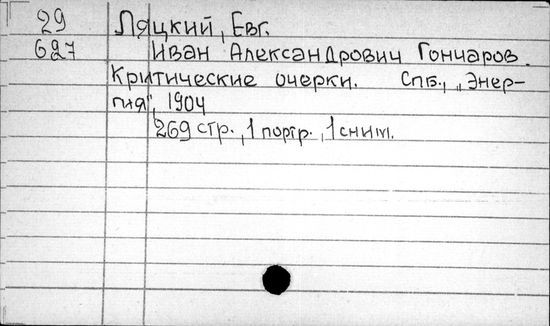 29 Ляцкий, Евг.
627 Иван Александрович Гончаров.
Критические очерки. Спб., „Энер-
гия", 1904
269 стр., 1 портр., 1 сним.